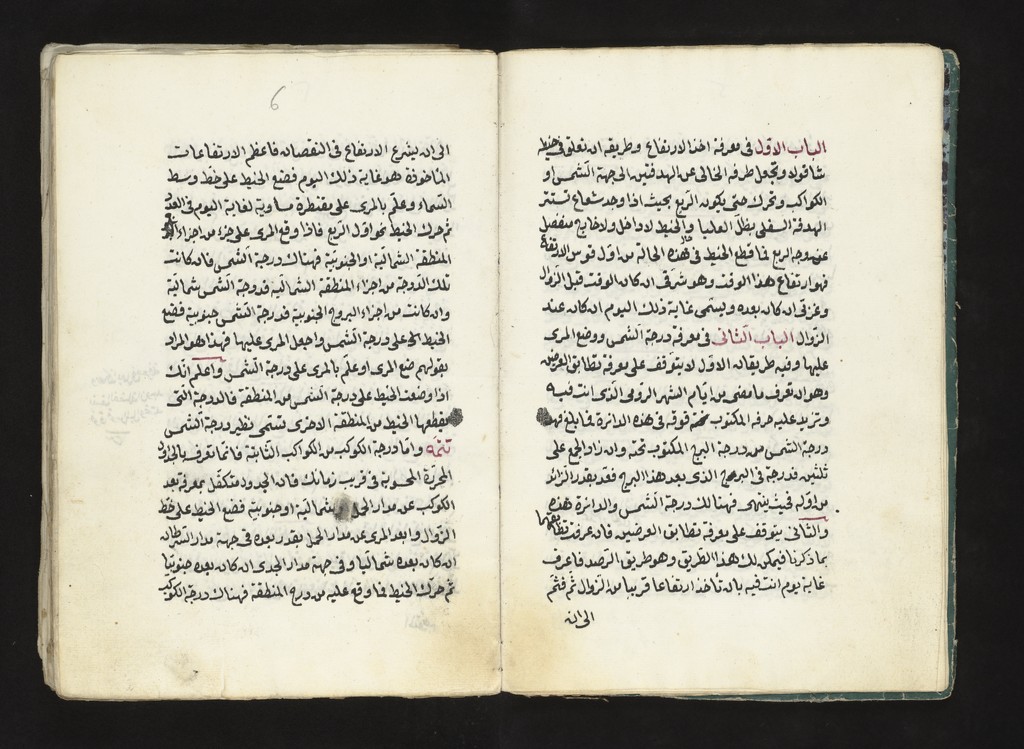 الباب الاول فى معرفة اخذ الارتفاع وطريقه ان تعلق فى خيط
شاقولا وتجعل طرفه الخالى عن الهدفتين الى جهة الشمس او
الكواكب وتحرك حتى يكون الربع بحيث اذا وجد شعاع تستتر
الهدفة السفلى بظل العليا والخيط لا داخل ولا خارج منفصل
عن وجه الربع فما قطع الخيط فى هذه الحالة من اول قوس الارتفاع
فهو ارتفاع هذا الوقت وهو شرقى ان كان الوقت قبل الزوال
وغربى ان كان بعده ويسمى غاية ذلك اليوم ان كان عند
الزوال الباب الثانى فى معرفة درجة الشمس ووضع المرى
عليها وفيه طريقان الاول لا يتوقف على معرفة تطابق العرضين
وهو ان تعرف ما مضى من ايام الشهر الرومى الذى انت فيه
وتزيد عليه حرفه المكتوب فوقه فى هذه الدائرة فما بلغ فهو
درجة الشمس من درجة البرج المكتوب تحته وان زاد الجمع على
ثلثين فدرجة فى البرج الذى بعد هذا البرج فعد بقدر الزائد
من اوله فحيث ينتهى فهنالك درجة الشمس والدائرة هذه
والثانى يتوقف على معرفة تطابق العرضين فان عرفت تطابقهما
بما ذكرنا فيمكن لك هذا الطريق وهو طريق الرصد فاعرف
غاية يوم انت فيه بان تأخذ ارتفاعا قريبا من الزوال ثم فثم
الى ان
6
الى ان يشرع الارتفاع فى النقصان فاعظم الارتفاعات
المأخوذة هو غاية ذلك اليوم فضع الخيط على خط وسط
السماء وعلم بالمرى على مقنطرة مساوية لغاية اليوم فى العدد
ثم حرك الخيط نحو اول الربع فاذا وقع المرى على جزء من اجزاء
المنطقة الشمالية او الجنوبية فهناك درجة الشمس فان كانت
تلك الدرجة من اجزاء المنطقة الشمالية فدرجة الشمس شمالية
وان كانت من اجزاء البروج الجنوبية فدرجة الشمس جنوبية فضع
الخيط على درجة الشمس واجعل المرى عليها فهذا هو المراد
بقولهم ضع المرى او علم بالمرى على درجة الشمس واعلم انك
اذا وضعت الخيط على درجة الشمس من المنطقة فالدرجة التى
يقطعها الخيط من المنطقة الاخرى تسمى نظير درجة الشمس
تتمه واما درجة الكوكب من الكواكب الثابتة فانما تعرف بالجداول
المحررة المحسوبة فى قريب زمانك فان الجدول متكفل بمعرفة بعد
الكوكب عن مدار الحمل شمالية او جنوبية فضع الخيط على خط
الزوال وابعد المرى عن مدار الحمل بقدر بعده فى جهة مدار السرطان
ان كان بعده شماليا وفى جهة مدار الجدى ان كان بعده جنوبيا
ثم حرك الخيط فما وقع عليه من درج المنطقة فهناك درجة الكوكب